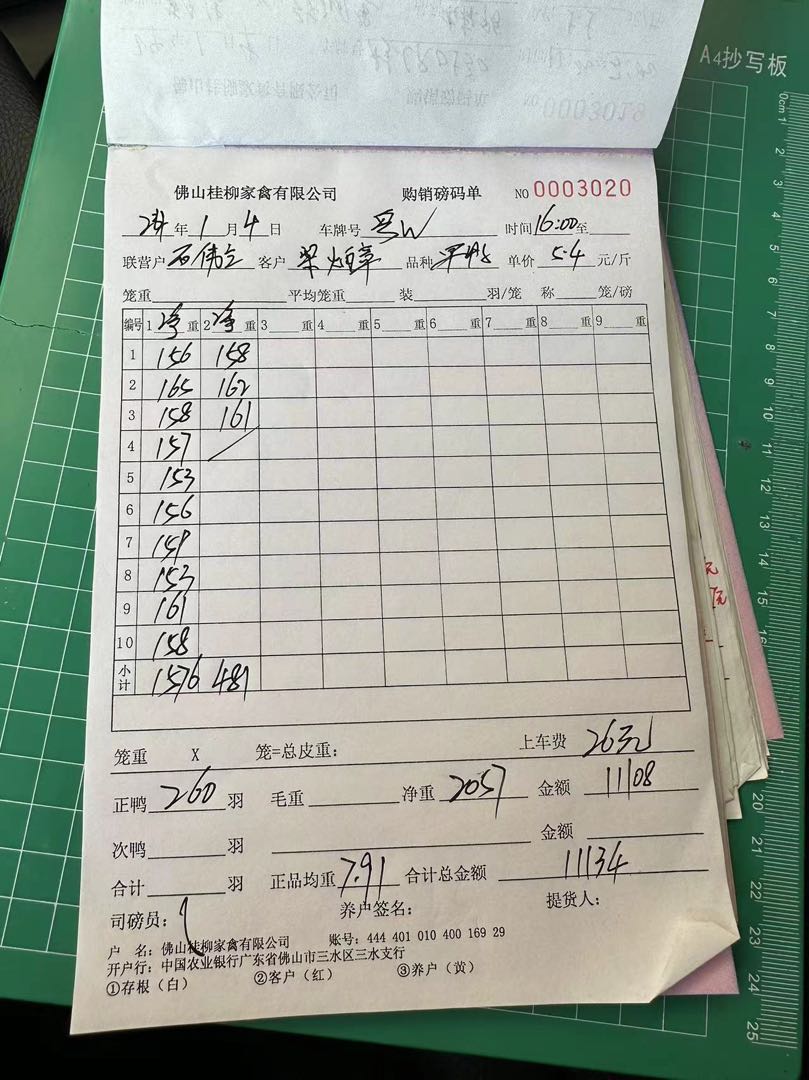 A4抄写板
0003019
佛山桂柳家禽有限公司 购销磅码单 NO 0003020
年 1 月 4 日 车牌号 粤W 时间 16:00 至
联营户 石伟立 客户 梁炳章 品种 单价 5.4 元/斤
笼重 平均笼重 装 羽/笼 称 笼/磅
编号 1 净 重 2 净 重 3 重 4 重 5 重 6 重 7 重 8 重 9 重
1 156 158
2 165 162
3 158 161
4 157
5 153
6 156
7 159
8 153
9 161
10 158
小计 1576 481
笼重 X 笼=总皮重: 上车费 26元
正鸭 260 羽 毛重 净重 2057 金额 11108
次鸭 羽 金额
合计 羽 正品均重 7.91 合计总金额 11134
司磅员: 养户签名: 提货人:
户 名: 佛山桂柳家禽有限公司 账号: 444 401 010 400 169 29
开户行: 中国农业银行广东省佛山市三水区三水支行
①存根（白） ②客户（红） ③养户（黄）